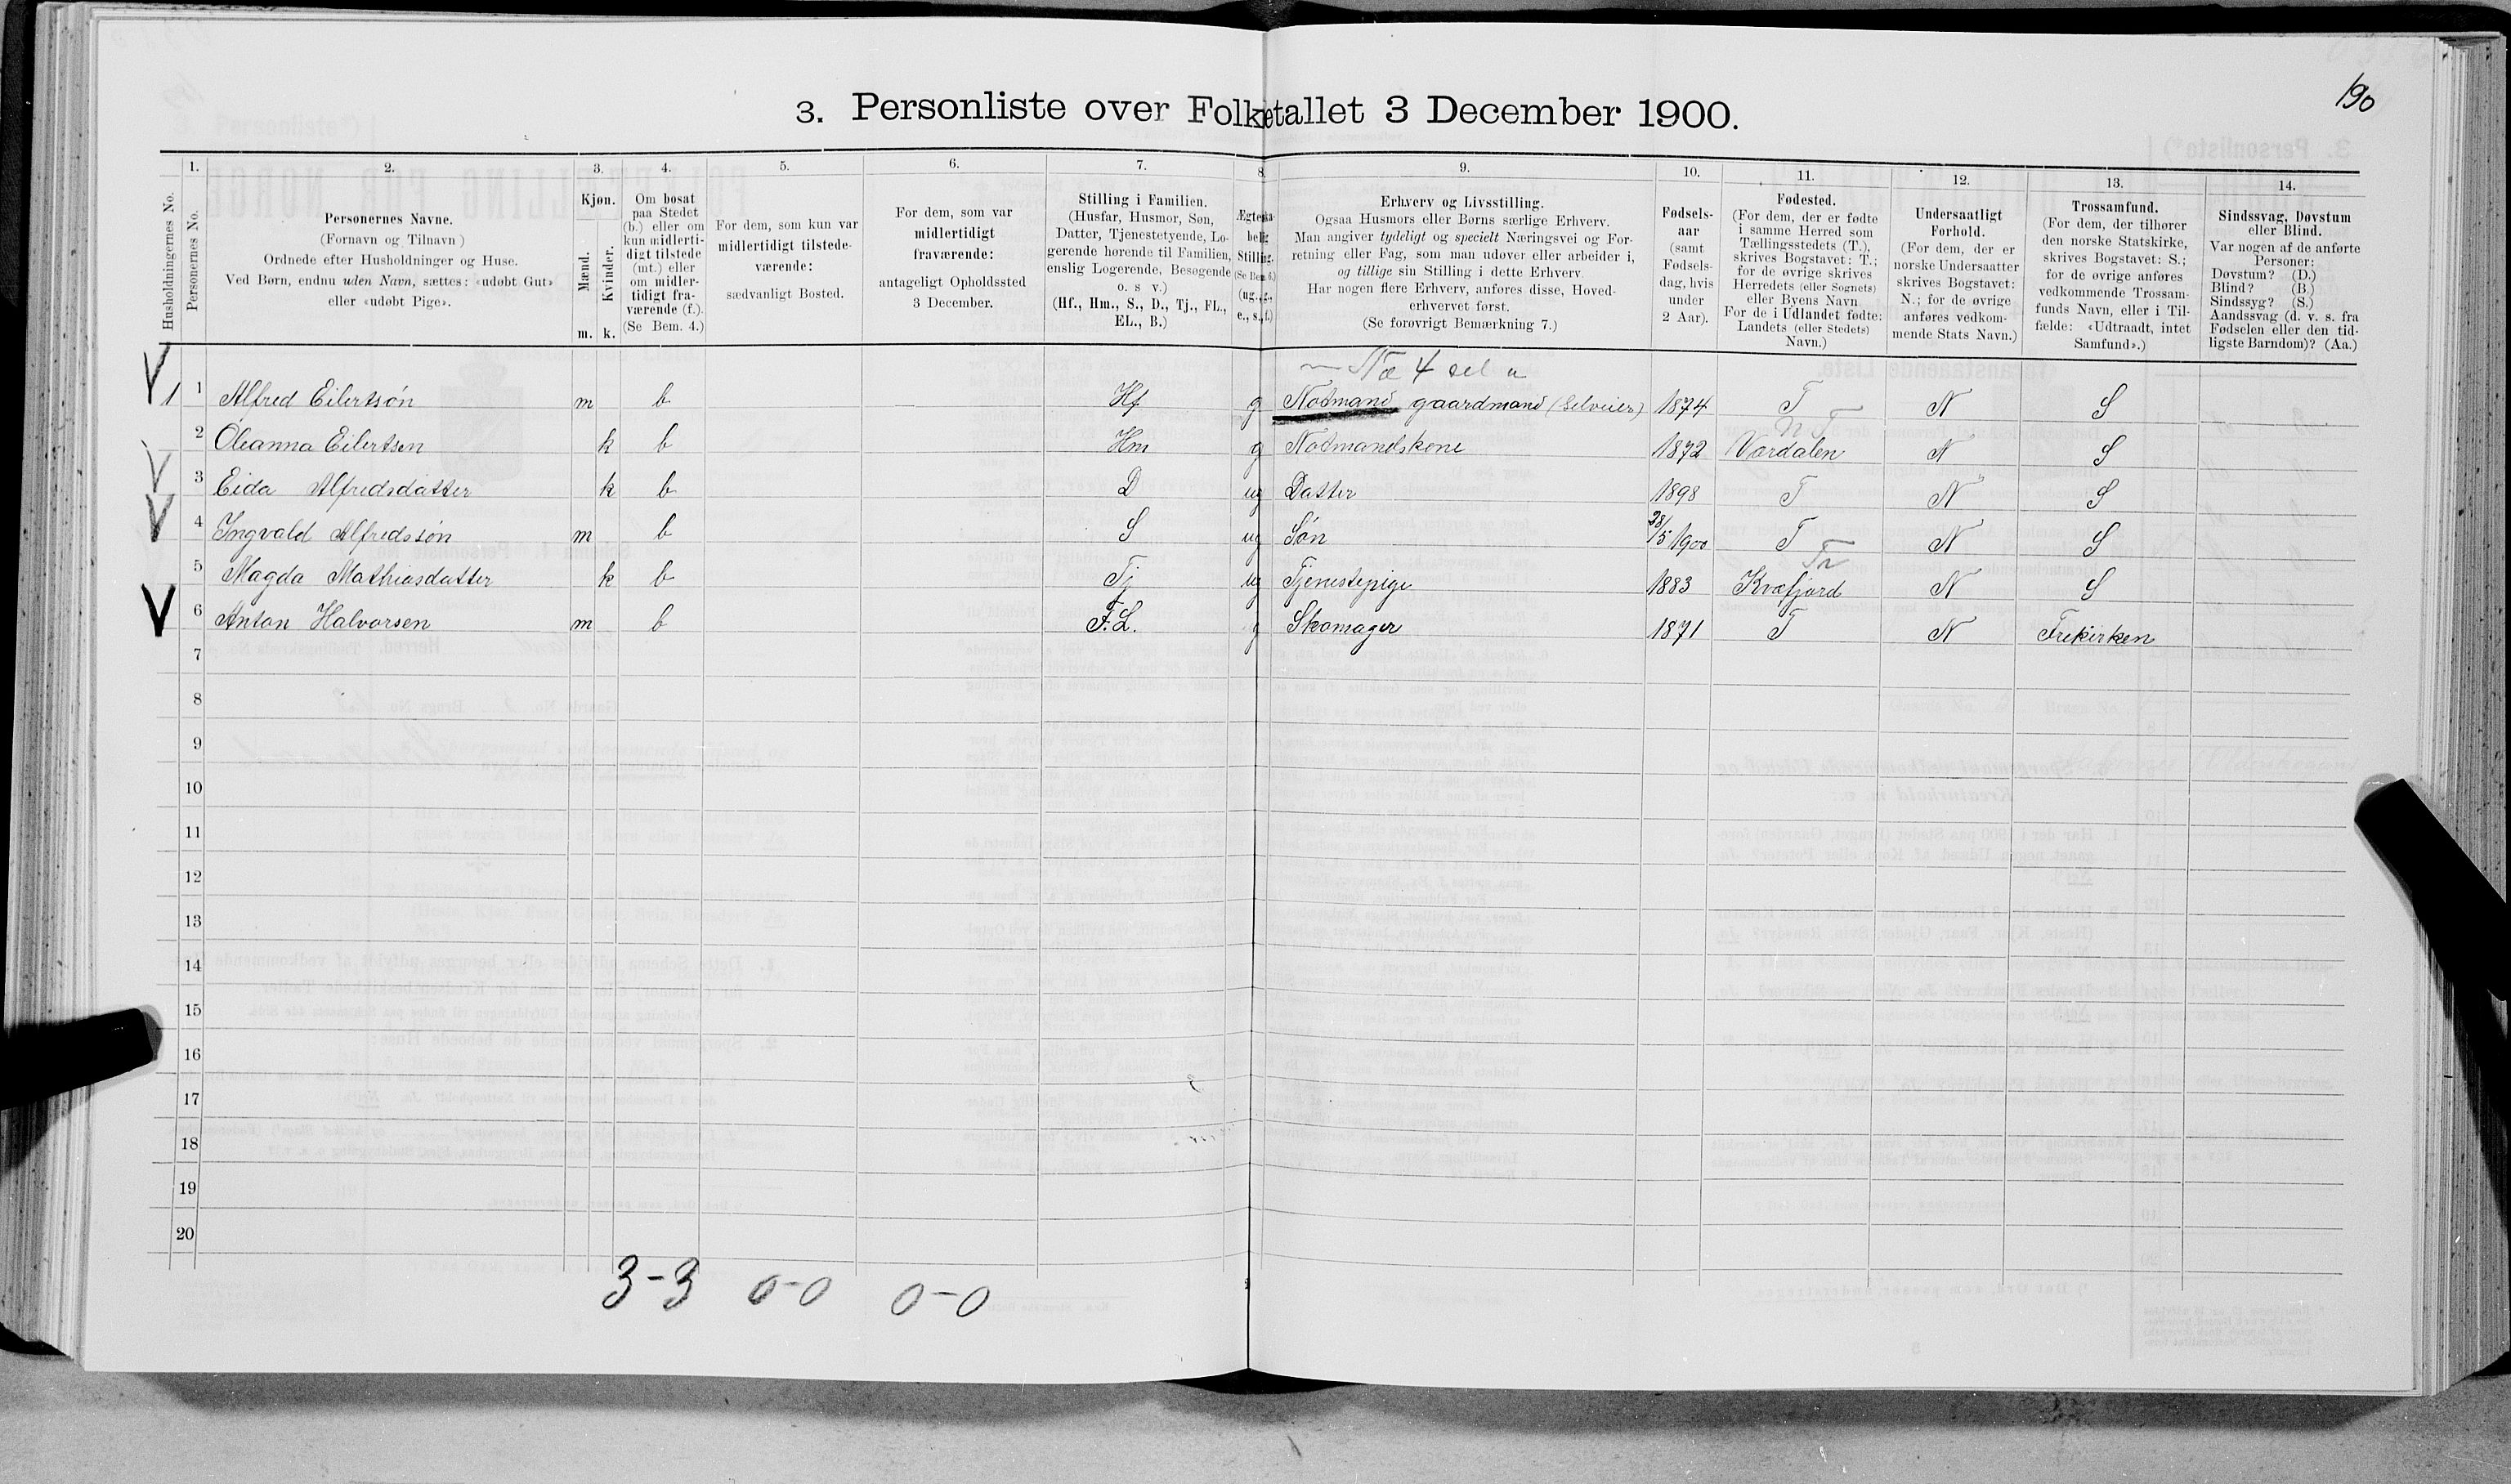 190
3. Personliste over Folketallet 3 December 1900.
1. 2. 3. 4. 5. 6. 7. 8. 9. 10. 11. 12. 13. 14.
Husholdningernes No.
Personernes No.
Personernes Navne.
(Fornavn og Tilnavn)
Ordnede efter Husholdninger og Huse.
Ved Børn, endnu uden Navn, sættes: «udøbt Gut»
eller «udøbt Pige».
Kjøn.
Mænd.
Kvinder.
m. k.
Om bosat
paa Stedet
(b.) eller om
kun midlerti-
digt tilstede
(mt.) eller
om midler-
tidigt fra-
værende (f.).
(Se Bem. 4.)
For dem, som kun var
midlertidigt tilstede-
værende:
sædvanligt Bosted.
For dem, som var
midlertidigt
fraværende:
antageligt Opholdssted
3 December.
Stilling i Familien.
(Husfar, Husmor, Søn,
Datter, Tjenestetyende, Lo-
gerende hørende til Familien,
enslig Logerende, Besøgende
o. s. v.)
(Hf., Hm., S., D., Tj., FL.,
EL., B.)
Ægteska-
belig
Stilling.
(Se Bem. 6.)
(ug., g.,
e., s., f.)
Erhverv og Livsstilling.
Ogsaa Husmors eller Børns særlige Erhverv.
Man angiver tydeligt og specielt Næringsvei og For-
retning eller Fag, som man udøver eller arbeider i,
og tillige sin Stilling i dette Erhverv.
Har nogen flere Erhverv, anføres disse, Hoved-
erhvervet først.
(Se forøvrigt Bemærkning 7.)
Fødsels-
aar
(samt
Fødsels-
dag, hvis
under
2 Aar).
Fødested.
(For dem, der er fødte
i samme Herred som
Tællingsstedets (T.),
skrives Bogstavet: T.;
for de øvrige skrives
Herredets (eller Sognets)
eller Byens Navn.
For de i Udlandet fødte:
Landets (eller Stedets)
Navn.)
Undersaatligt
Forhold.
(For dem, der er
norske Undersaatter
skrives Bogstavet:
N.; for de øvrige
anføres vedkom-
mende Stats Navn.)
Trossamfund.
(For dem, der tilhører
den norske Statskirke,
skrives Bogstavet: S.;
for de øvrige anføres
vedkommende Trossam-
funds Navn, eller i Til-
fælde: «Udtraadt, intet
Samfund».)
Sindssvag, Døvstum
eller Blind.
Var nogen af de anførte
Personer:
Døvstum? (D.)
Blind? (B.)
Sindssyg? (S.)
Aandssvag (d. v. s. fra
Fødselen eller den tid-
ligste Barndom)? (Aa.)
1 1 Alfred Eilertsøn m b Hf g Notmand gaardmand (Selveier) 1874 T N S
n T
2 Oleanna Eilertsen k b Hm g Notmandskone 1872 Værdalen N S
3 Eida Alfredsdatter k b D ug Datter 1898 T N S
4 Ingvald Alfredssøn m b S ug Søn 28/5 1900 T N S
Tr
5 Magda Mathiasdatter k b Tj ug Tjenestepige 1883 Kvæfjord N S
6 Anton Halvorsen m b F.L. g Skomager 1871 T N Frikirken
7
8
9
10
11
12
13
14
15
16
17
18
19
20
3-3 0-0 0-0